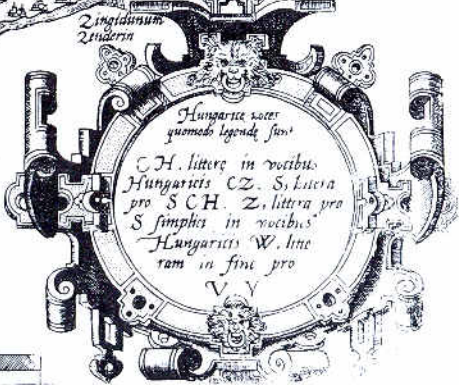 Zingidunum
Zenderin
Hungaricę voces
quomodo legendę sunt
CH. litterę in vocibus
Hungaricis CZ. S, Litera
pro SCH. Z, littera pro
S simplici in vocibus
Hungaricis W. litte
ram in fine pro
V V